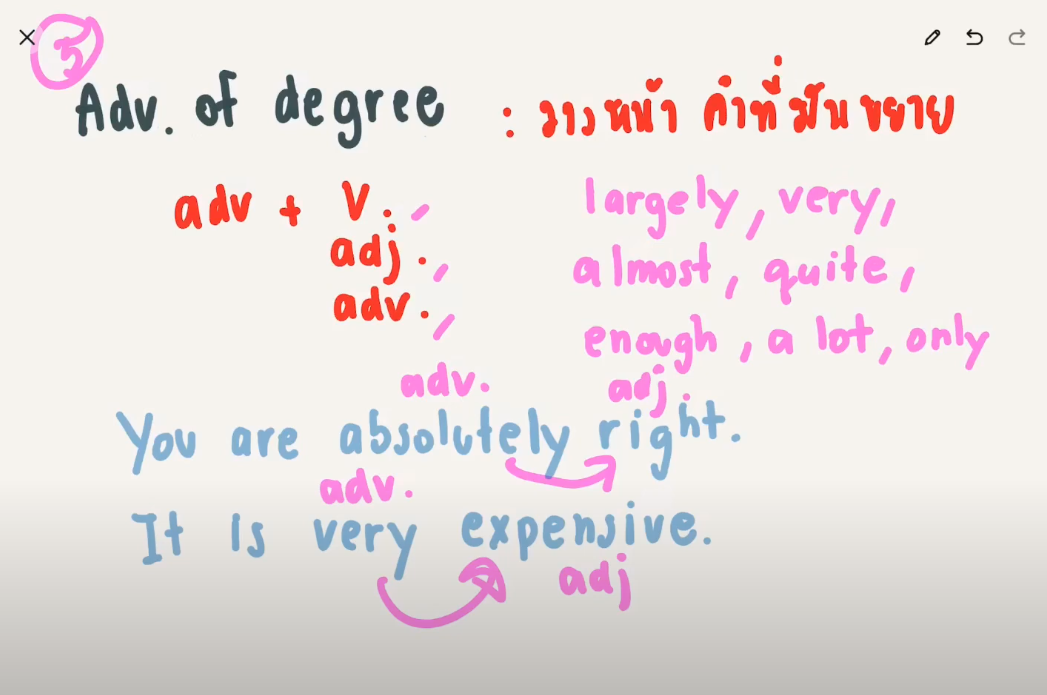 5
Adv. of degree : วางหน้า คำที่มันขยาย
adv + V.
adj.
adv.
largely, very,
almost, quite,
enough, a lot, only
adv. adj.
You are absolutely right.
adv.
It is very expensive.
adj